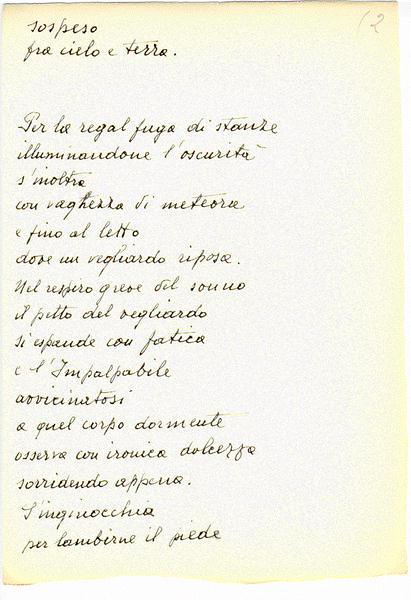 2
sospeso
fra cielo e terra.
Per la regal fuga di stanze
illuminandone l'oscurità
s'inoltra
con vaghezza di meteora
e fino al letto
dove un vegliardo riposa.
Nel respiro greve del sonno
il petto del vegliardo
si espande con fatica
e l'Impalpabile
avvicinatosi
a quel corpo dormente
osserva con ironica dolcezza
sorridendo appena.
S'inginocchia
per lambirne il piede